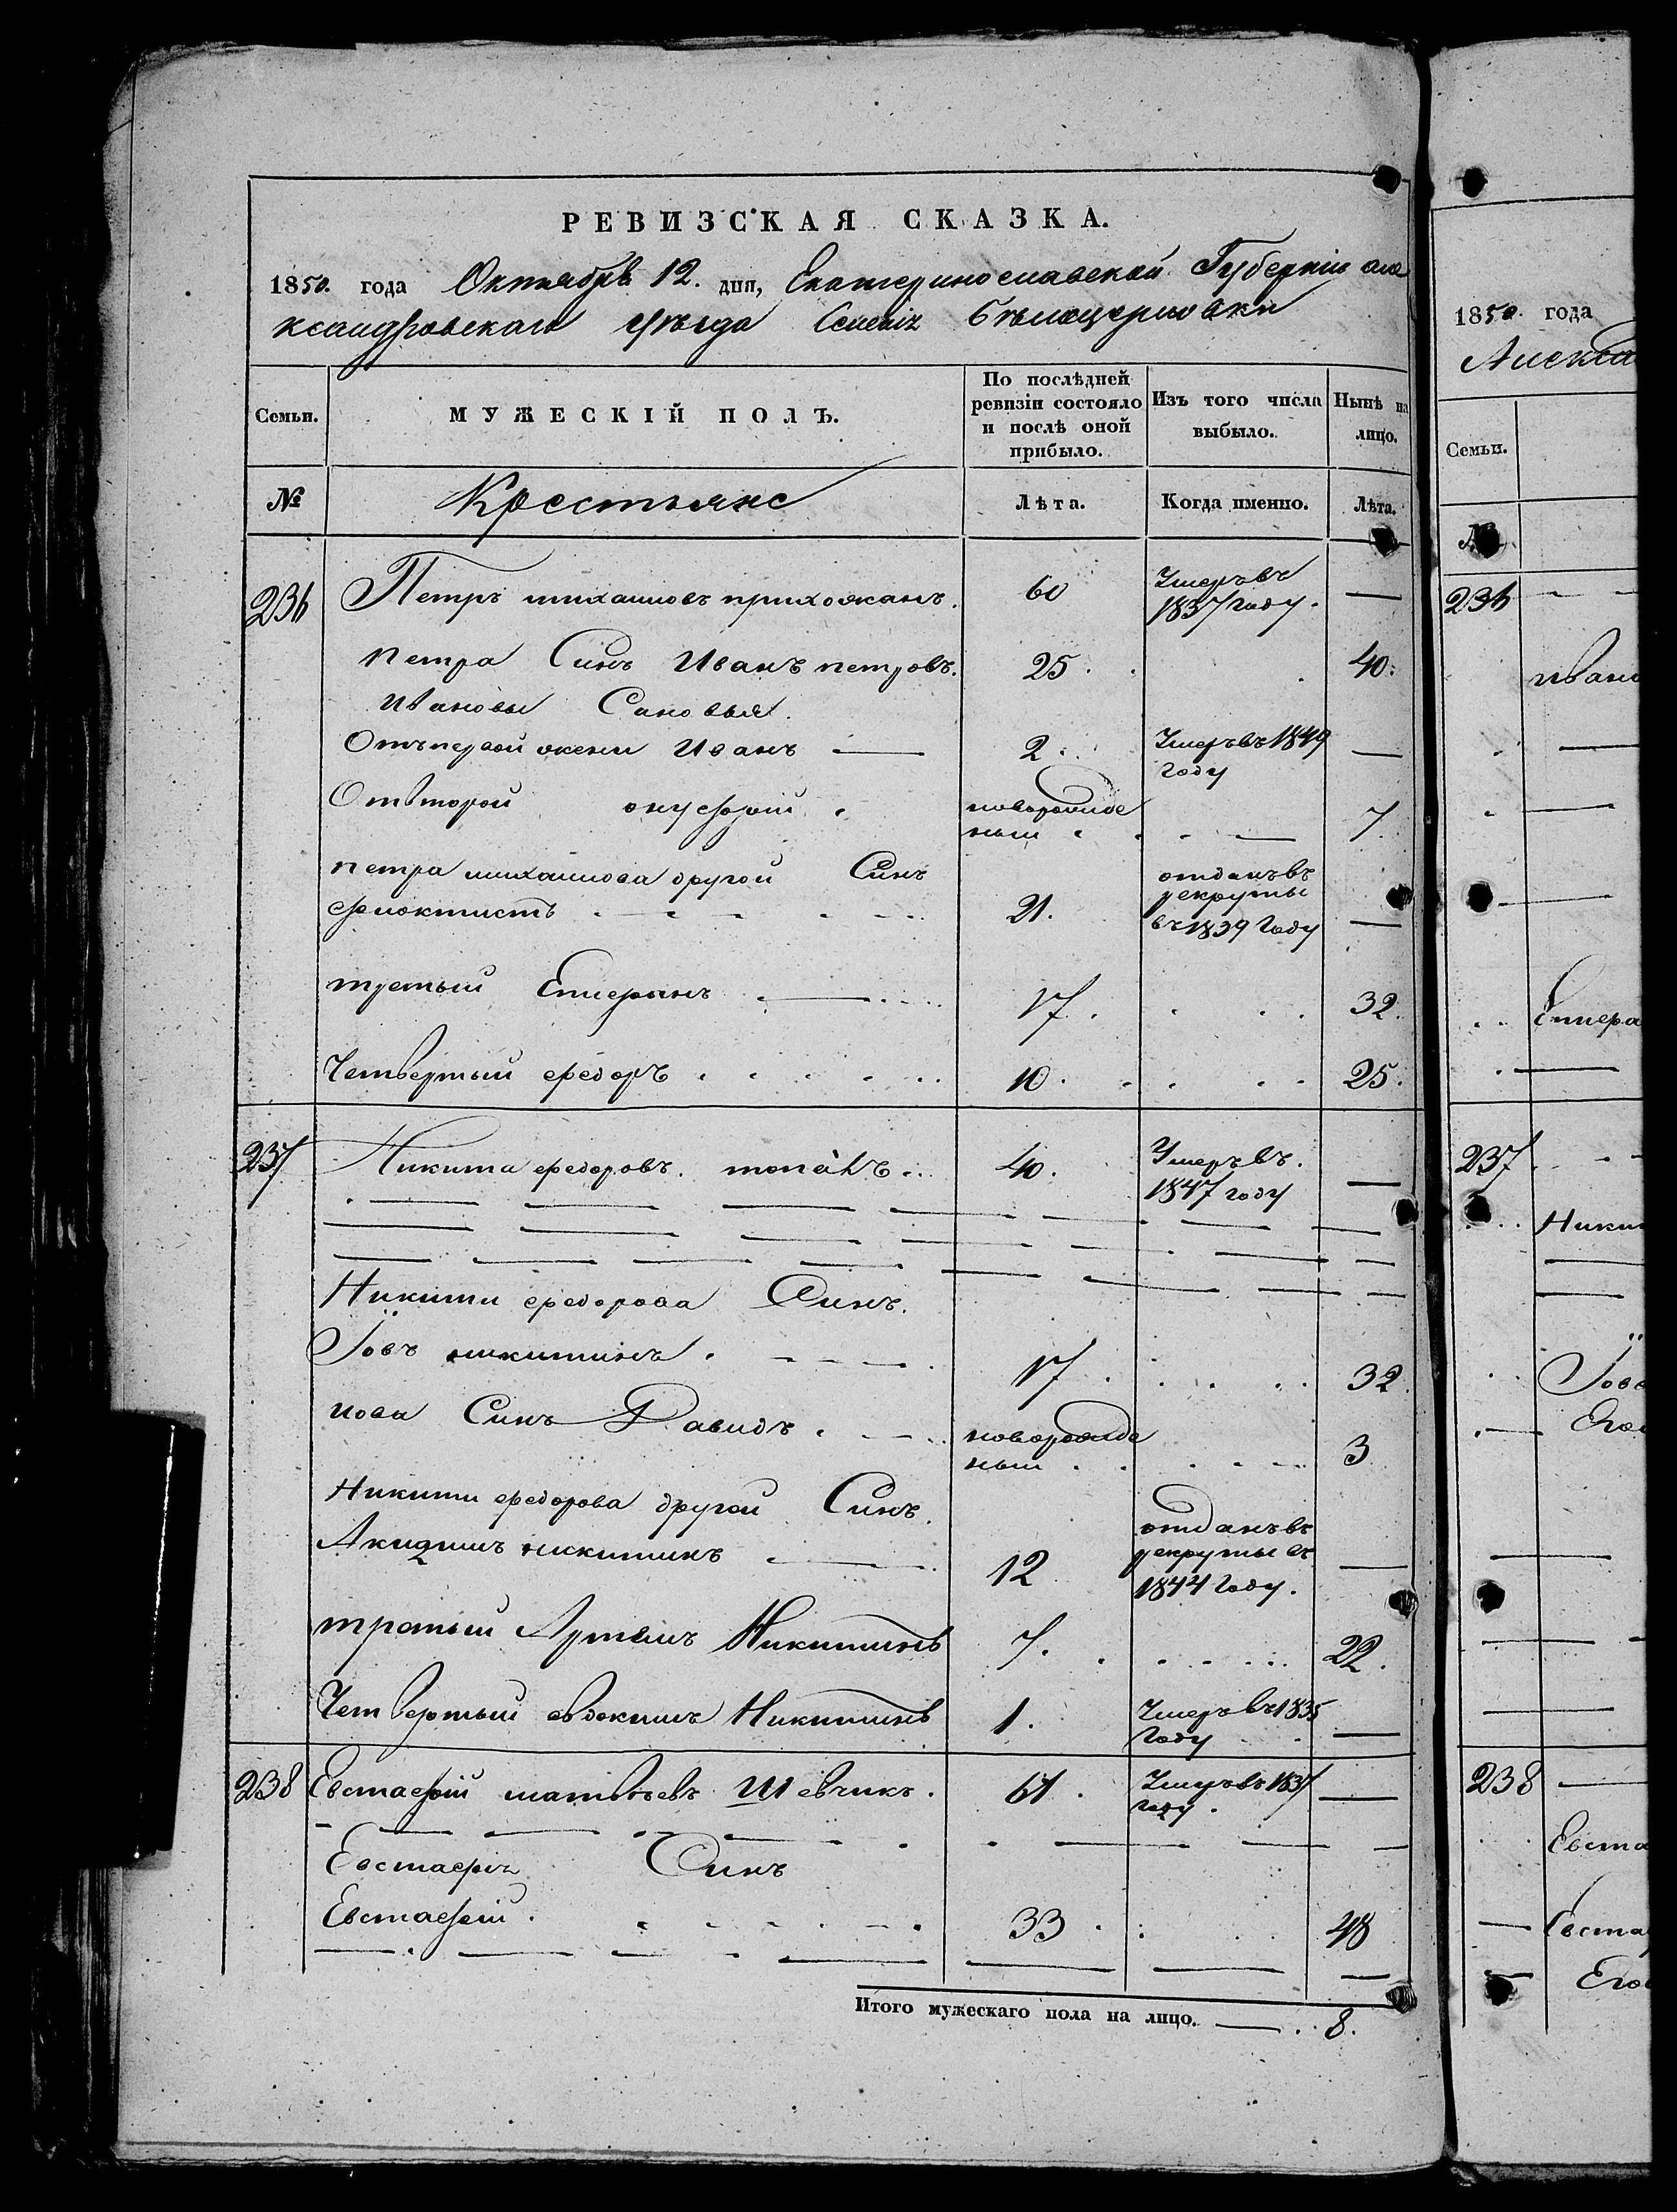 РЕВИЗСКАЯ СКАЗКА.
1850. года Октября 12. дня, Екатеринославской Губерніи але
ксандровскаго уѣзда Селенія Бѣлоцерковки
Семьи. МУЖЕСКІЙ ПОЛЪ. По послѣдней ревизіи состояло и послѣ оной прибыло. Изъ того числа выбыло. Нынѣ на лицо.
№ Крестьяне Лѣта. Когда именно. Лѣта.
236 Петръ михаиловъ прихожанъ. 60 Умеръ въ 1837 году. —
петра Синъ Иванъ петровъ. 25 40.
Ивановы Сановья.
Отъ первой жени Иванъ — 2. Умеръ въ 1849 году —
От второй онуфрій новорожде ный 7.
петра михаилова другой Синъ
феоктистъ 21. отданъ въ рекруты въ 1839 Году —
третый Епиеранъ 17. 32.
Четвертый федоръ 10. 25.
237 Никита федоровъ. топалъ 40. Умеръ въ. 1847 году —
Никити федорова Синъ.
Іовъ никитинъ. 17. 32.
иова Синъ Давидъ. новорожде ный 3
Никити федорова другой Синъ.
Акидимъ никитинъ 12 отданъ въ рекруты въ 1844 Году. —
третый Артемъ Никитинъ 7. 22.
Четвертый евдокимъ Никитинъ 1. Умеръ въ 1835 Году —
238 Евстафій матвѣевъ Шевчикъ. 61. Умеръ въ 1837 году. —
Евстафія Синъ
Евстафій. 33. 48
Итого мужескаго пола на лицо. — 8.
1850. года
Алекса
Семьи.
№
236
ивано
Епиера
237
Никит
Іова
Его
238
Евста
Евста
Его